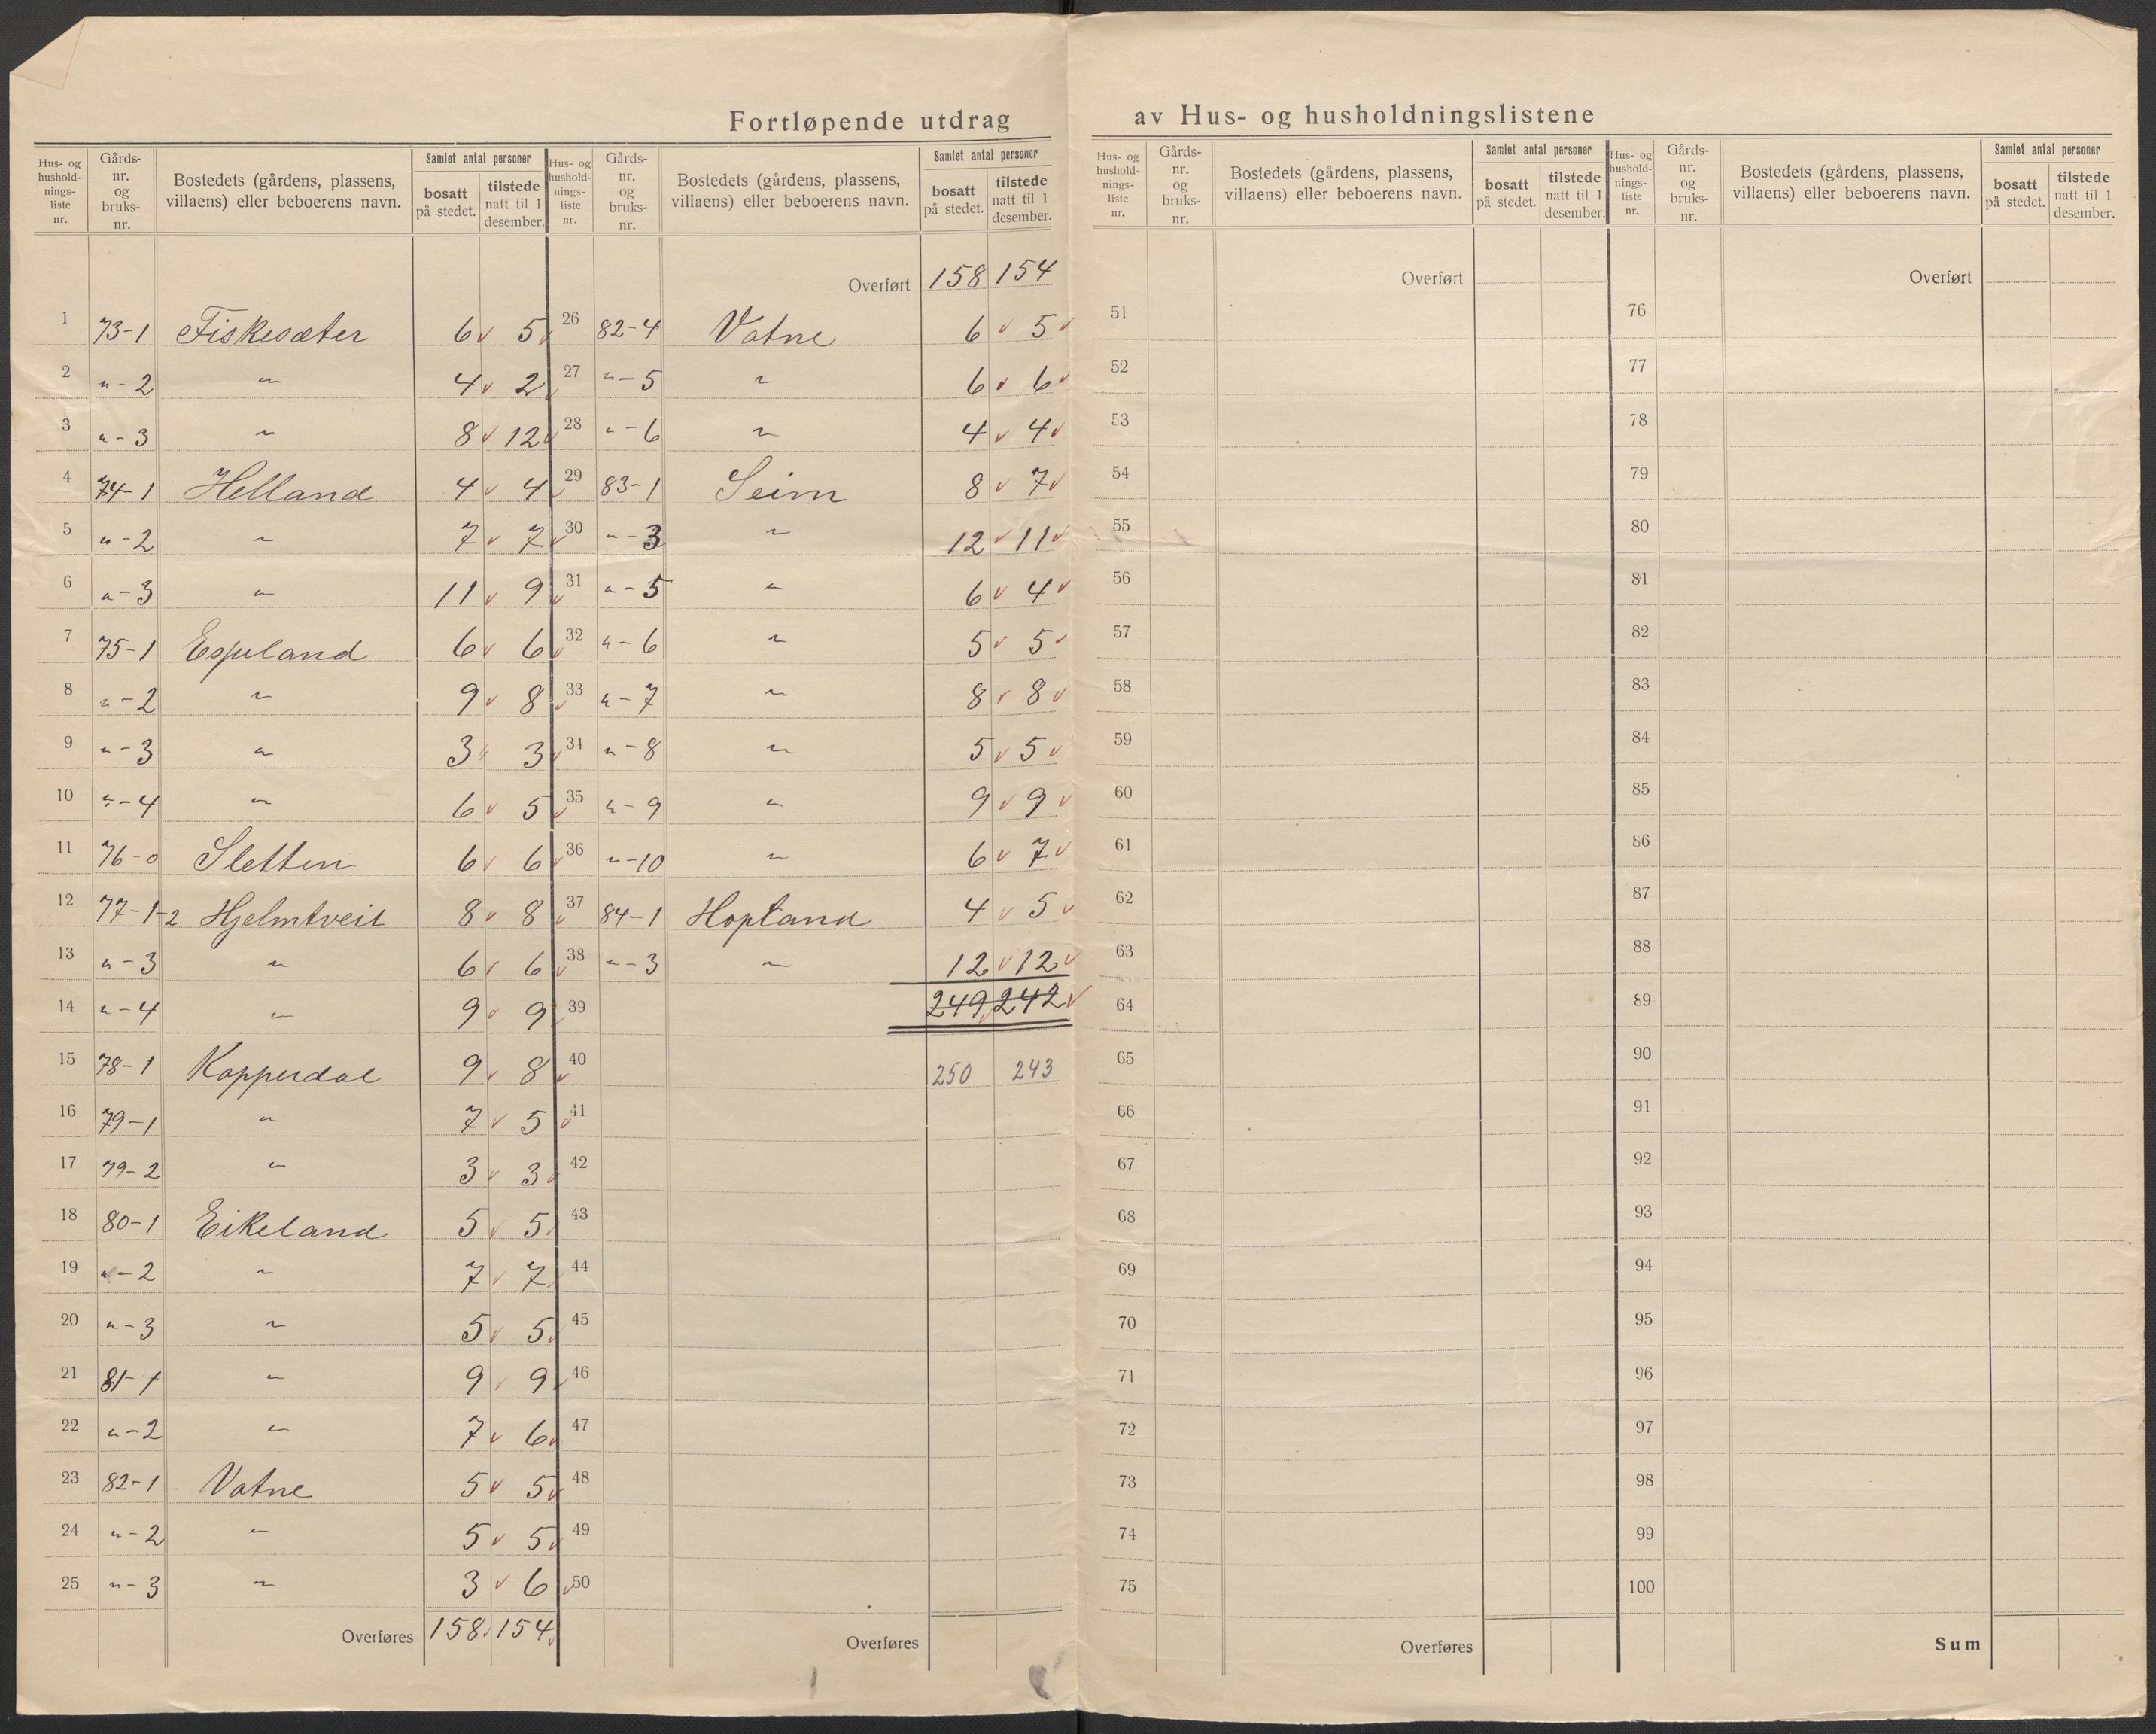 Fortløpende utdrag av Hus- og husholdningslistene
Hus- og husholdnings-liste nr. Gårds-nr. og bruks-nr. Bostedets (gårdens, plassens, villaens) eller beboerens navn. Samlet antal personer bosatt på stedet. tilstede natt til 1 desember.
1 73-1 Fiskesæter 6 5
2 "-2 " 4 2
3 "-3 " 8 12
4 74-1 Helland 4 4
5 "-2 " 7 7
6 "-3 " 11 9
7 75-1 Espeland 6 6
8 "-2 " 9 8
9 "-3 " 3 3
10 "-4 " 6 5
11 76-0 Sletten 6 6
12 77-1-2 Hjelmtveit 8 8
13 "-3 " 6 6
14 "-4 " 9 9
15 78-1 Kopperdal 9 8
16 79-1 " 7 5
17 79-2 " 3 3
18 80-1 Eikeland 5 5
19 "-2 " 7 7
20 "-3 " 5 5
21 81-1 " 9 9
22 "-2 " 7 6
23 82-1 Vatne 5 5
24 "-2 " 5 5
25 "-3 " 3 6
Overføres 158 154
Hus- og husholdnings-liste nr. Gårds-nr. og bruks-nr. Bostedets (gårdens, plassens, villaens) eller beboerens navn. Samlet antal personer bosatt på stedet. tilstede natt til 1 desember.
Overført 158 154
26 82-4 Vatne 6 5
27 "-5 " 6 6
28 "-6 " 4 4
29 83-1 Seim 8 7
30 "-3 " 12 11
31 "-5 " 6 4
32 "-6 " 5 5
33 "-7 " 8 8
34 "-8 " 5 5
35 "-9 " 9 9
36 "-10 " 6 7
37 84-1 Hopland 4 5
38 "-3 " 12 12
39 249 242
40 250 243
41
42
43
44
45
46
47
48
49
50
Overføres
Hus- og husholdnings-liste nr. Gårds-nr. og bruks-nr. Bostedets (gårdens, plassens, villaens) eller beboerens navn. Samlet antal personer bosatt på stedet. tilstede natt til 1 desember.
Overført
51
52
53
54
55
56
57
58
59
60
61
62
63
64
65
66
67
68
69
70
71
72
73
74
75
Overføres
Hus- og husholdnings-liste nr. Gårds-nr. og bruks-nr. Bostedets (gårdens, plassens, villaens) eller beboerens navn. Samlet antal personer bosatt på stedet. tilstede natt til 1 desember.
Overført
76
77
78
79
80
81
82
83
84
85
86
87
88
89
90
91
92
93
94
95
96
97
98
99
100
Sum